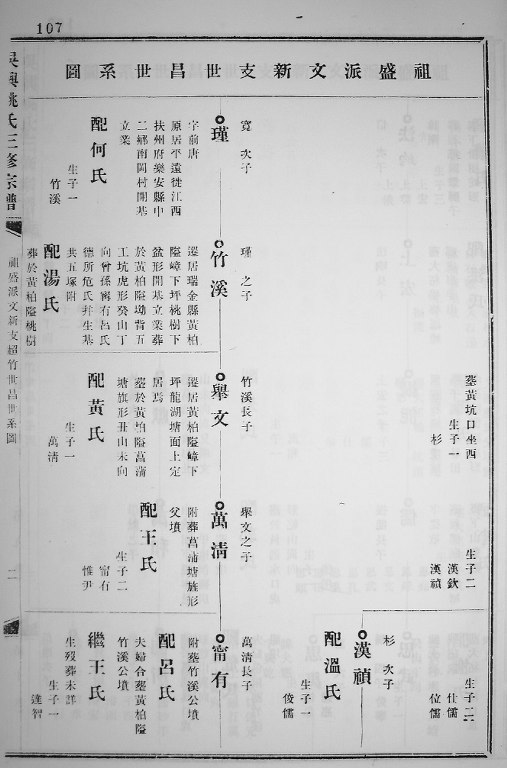 107
祖盛派文新支世昌世系圖
吳興姚氏三修宗譜
祖盛派文新支超竹世昌世系圖
二
墓黃坑口坐西
生子一
杉
生子二
漢欽
漢禎
生子二
仕儒
位儒
杉次子
漢禎
配溫氏
生子一
俊儒
寬次子
瑾
字前唐
原居平遠徙江西
扶州府樂安縣中
二鄉南岡村開基
立業
配何氏
生子一
竹溪
瑾之子
竹溪
遷居瑞金縣黃柏
隘嶂下坪桃樹下
盆形開基立業葬
於黃柏隘坳背五
工坑虎形癸山丁
向曾孫甯有呂氏
德所危氏幷生基
共五塚附
配湯氏
葬於黃柏隘桃樹
竹溪長子
舉文
遷居黃柏隘嶂下
坪龍湖塘面上定
居焉
墓於黃柏隘菖蒲
塘旗形丑山未向
配黃氏
生子一
萬淸
舉文之子
萬淸
附葬菖蒲塘旗形
父墳
配王氏
生子二
甯有
惟尹
萬淸長子
甯有
附墓竹溪公墳
配呂氏
夫婦合墓黃柏隘
竹溪公墳
繼王氏
生歿葬未詳
生子一
達智